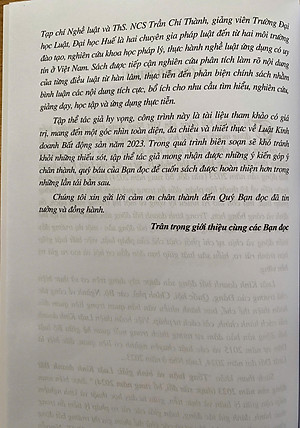 Tạp chí Nghề luật và ThS. NCS Trần Chí Thành, giảng viên Trường Đại
học Luật, Đại học Huế là hai chuyên gia pháp luật đến từ hai môi trường
đào tạo, nghiên cứu khoa học pháp lý, thực hành nghề luật ứng dụng có uy
tín ở Việt Nam. Sách được tiếp cận nghiên cứu phân tích làm rõ nội dung
của từng điều luật từ hàn lâm, thực tiễn đến phản biện chính sách nhằm
bình luận các nội dung tích cực, bổ ích cho nhu cầu tìm hiểu, nghiên cứu,
giảng dạy, học tập và ứng dụng thực tiễn.
Tập thể tác giả hy vọng, công trình này là tài liệu tham khảo có giá
trị, mang đến một góc nhìn toàn diện, đa chiều và thiết thực về Luật Kinh
doanh Bất động sản năm 2023. Trong quá trình biên soạn sẽ khó tránh
khỏi những thiếu sót, tập thể tác giả mong nhận được những ý kiến góp ý
chân thành, quý báu của Bạn đọc để cuốn sách được hoàn thiện hơn trong
những lần tái bản sau.
Chúng tôi xin gửi lời cảm ơn chân thành đến Quý Bạn đọc đã tin
tưởng và đồng hành.
Trân trọng giới thiệu cùng các Bạn đọc